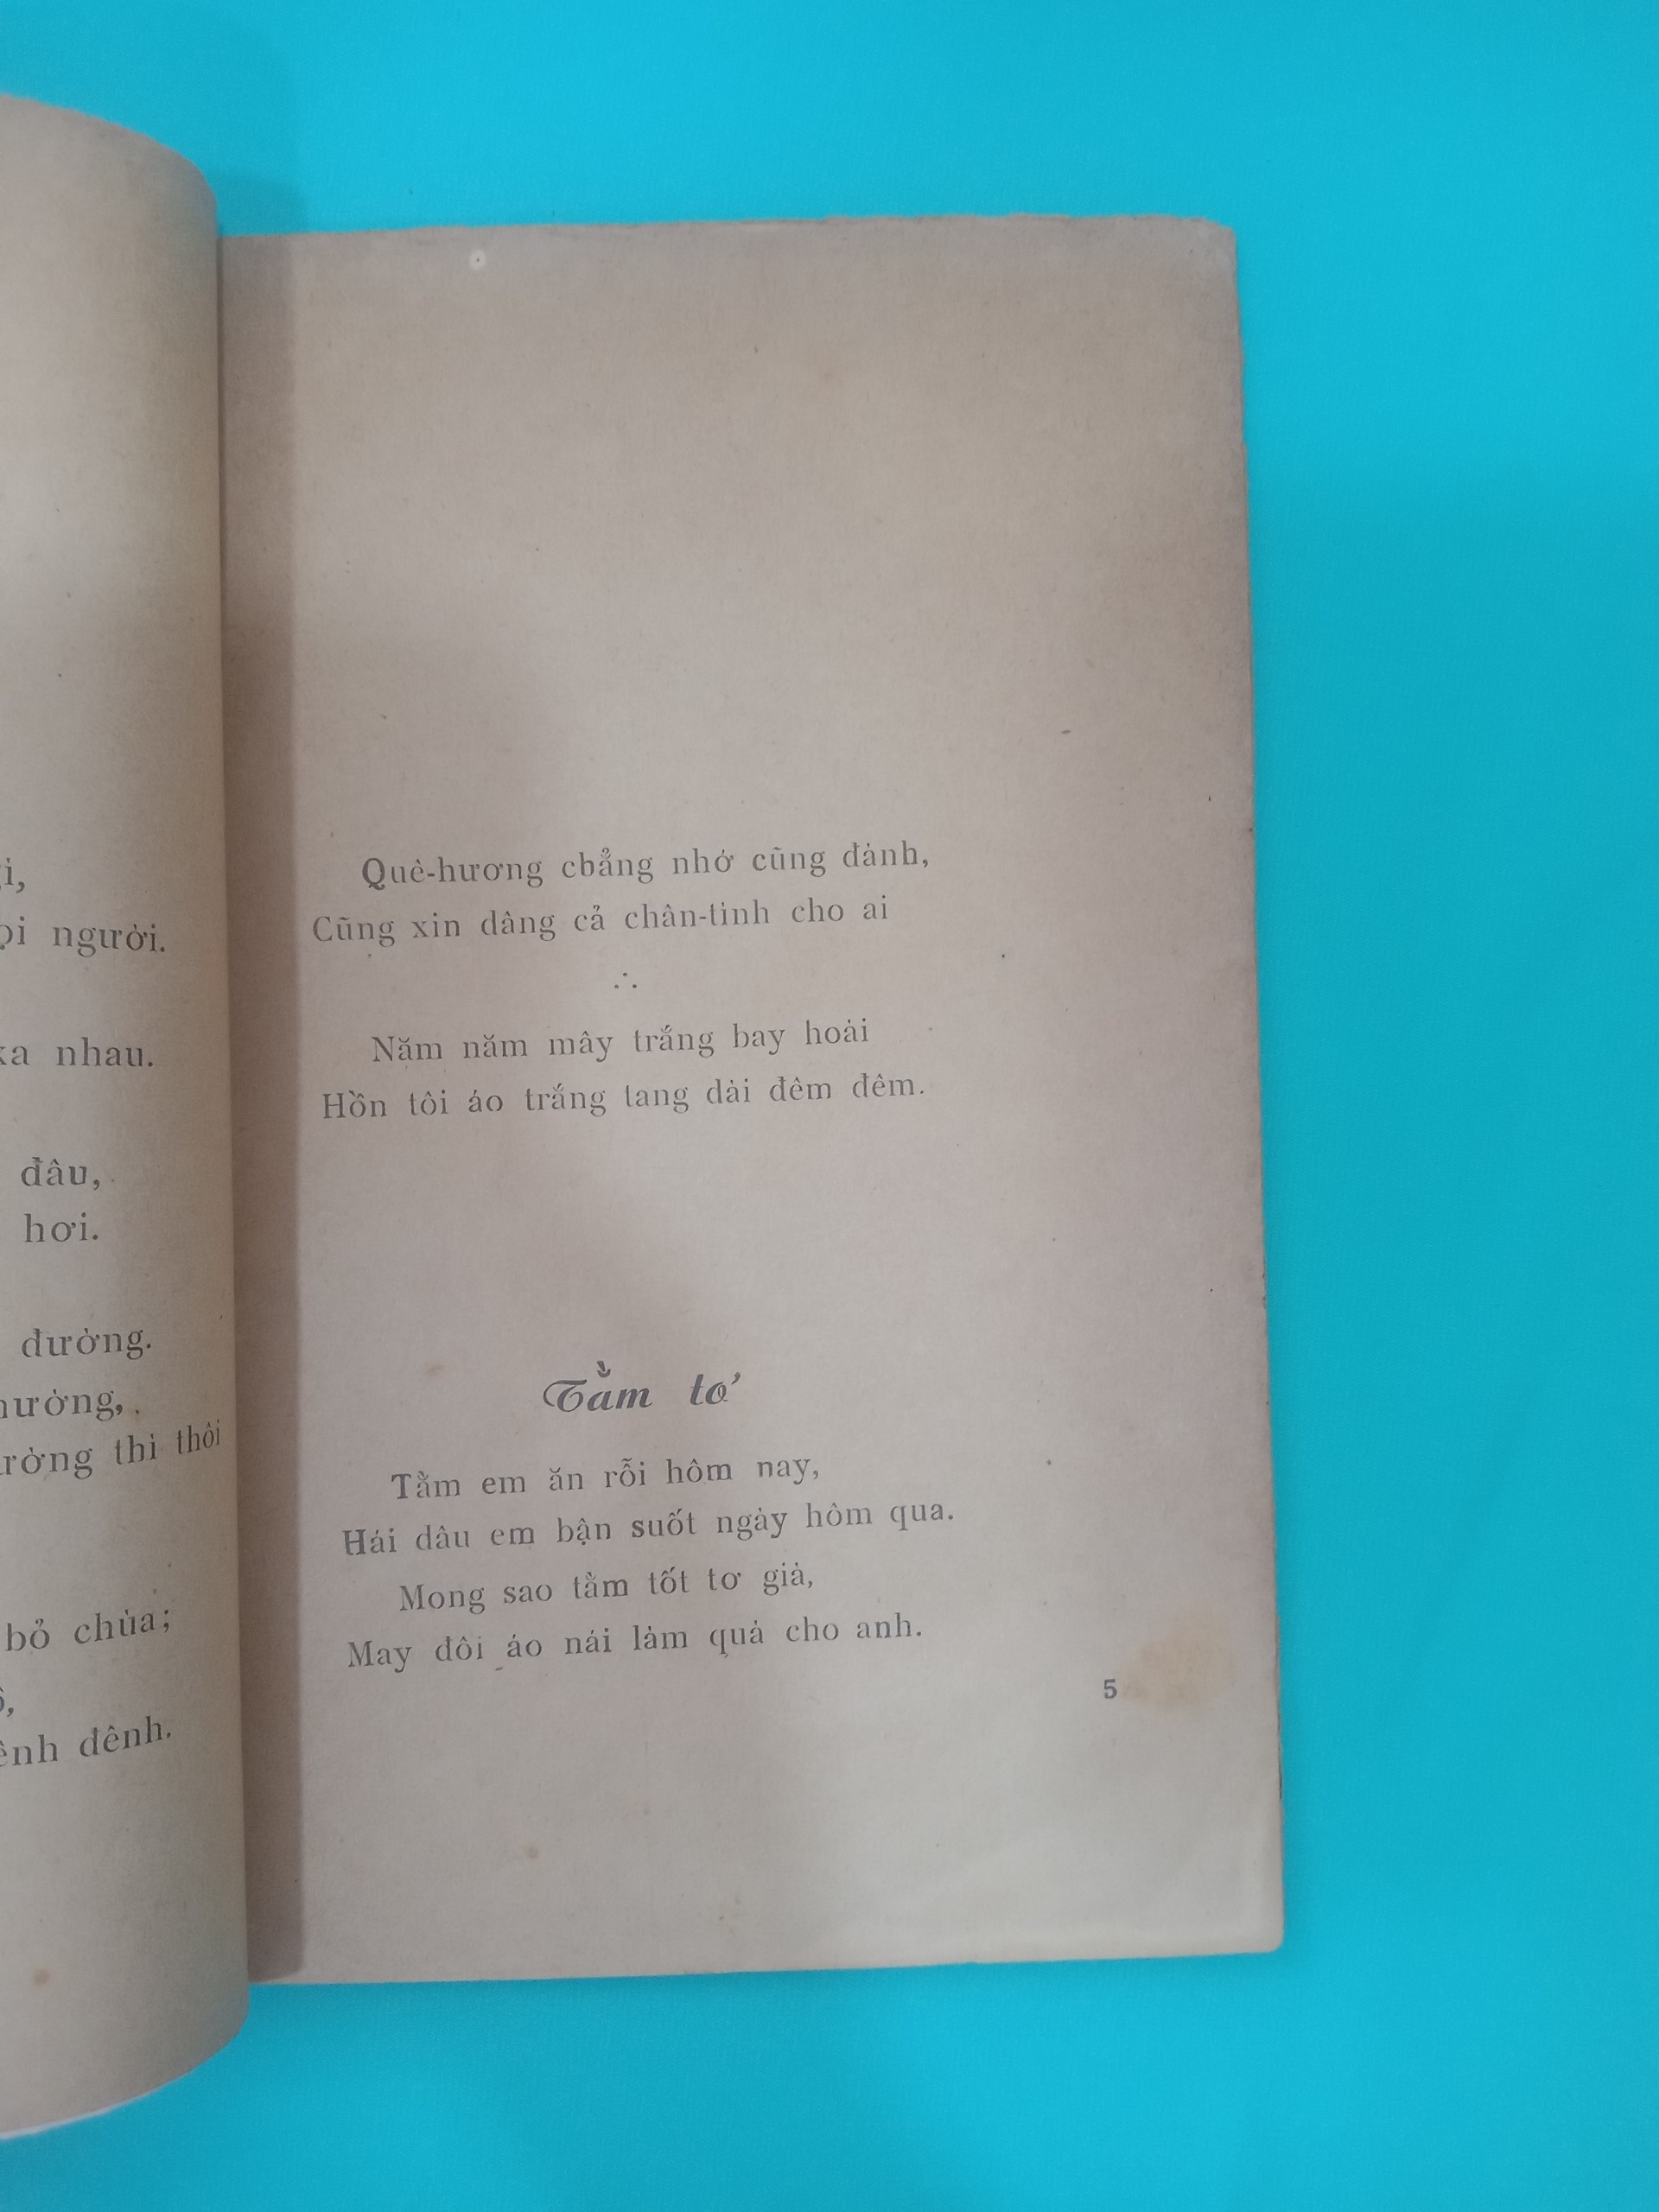 i,
ọi người.
xa nhau.
đâu,
hơi.
đường.
hường,
ường thì thôi
bỏ chùa;
ênh đênh.
Quê-hương chẳng nhớ cũng đành,
Cũng xin dâng cả chân-tình cho ai
∴
Năm năm mây trắng bay hoài
Hồn tôi áo trắng tang dài đêm đêm.
Tằm tơ
Tằm em ăn rỗi hôm nay,
Hái dâu em bận suốt ngày hôm qua.
Mong sao tằm tốt tơ già,
May đôi áo nái làm quà cho anh.
5